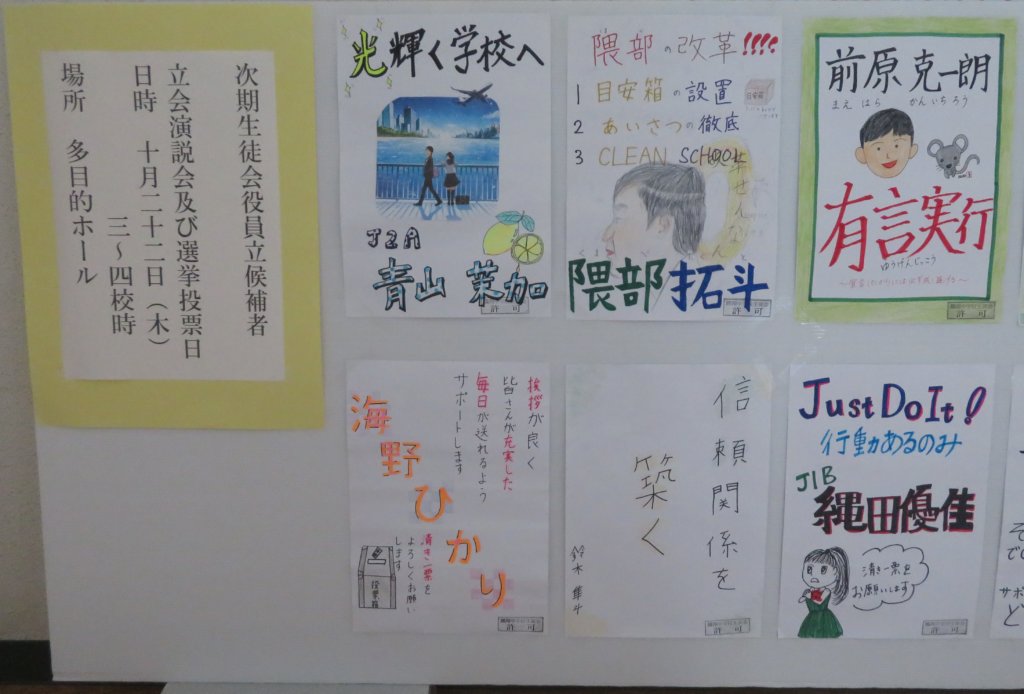 次期生徒会役員立候補者
立会演説会及び選挙投票日
日時 十月二十二日（木）
三～四校時
場所 多目的ホール
光輝く学校へ
J2A
青山 茉加
許可
隈部の改革!!!!
1 目安箱の設置
目安箱
2 あいさつの徹底
3 CLEAN SCHOOL
隈部 拓斗
許可
前原 克一朗
まえ はら かん いちろう
有言実行
ゆうげんじっこう
許可
挨拶が良く
皆さんが充実した
毎日が送れるよう
サポートします
海野ひかり
清き一票を
よろしくお願い
します
投票箱
許可
信頼関係を
築く
鈴木 隼斗
許可
Just Do It!
行動あるのみ
J1B
縄田優佳
清き一票を
お願いします
許可